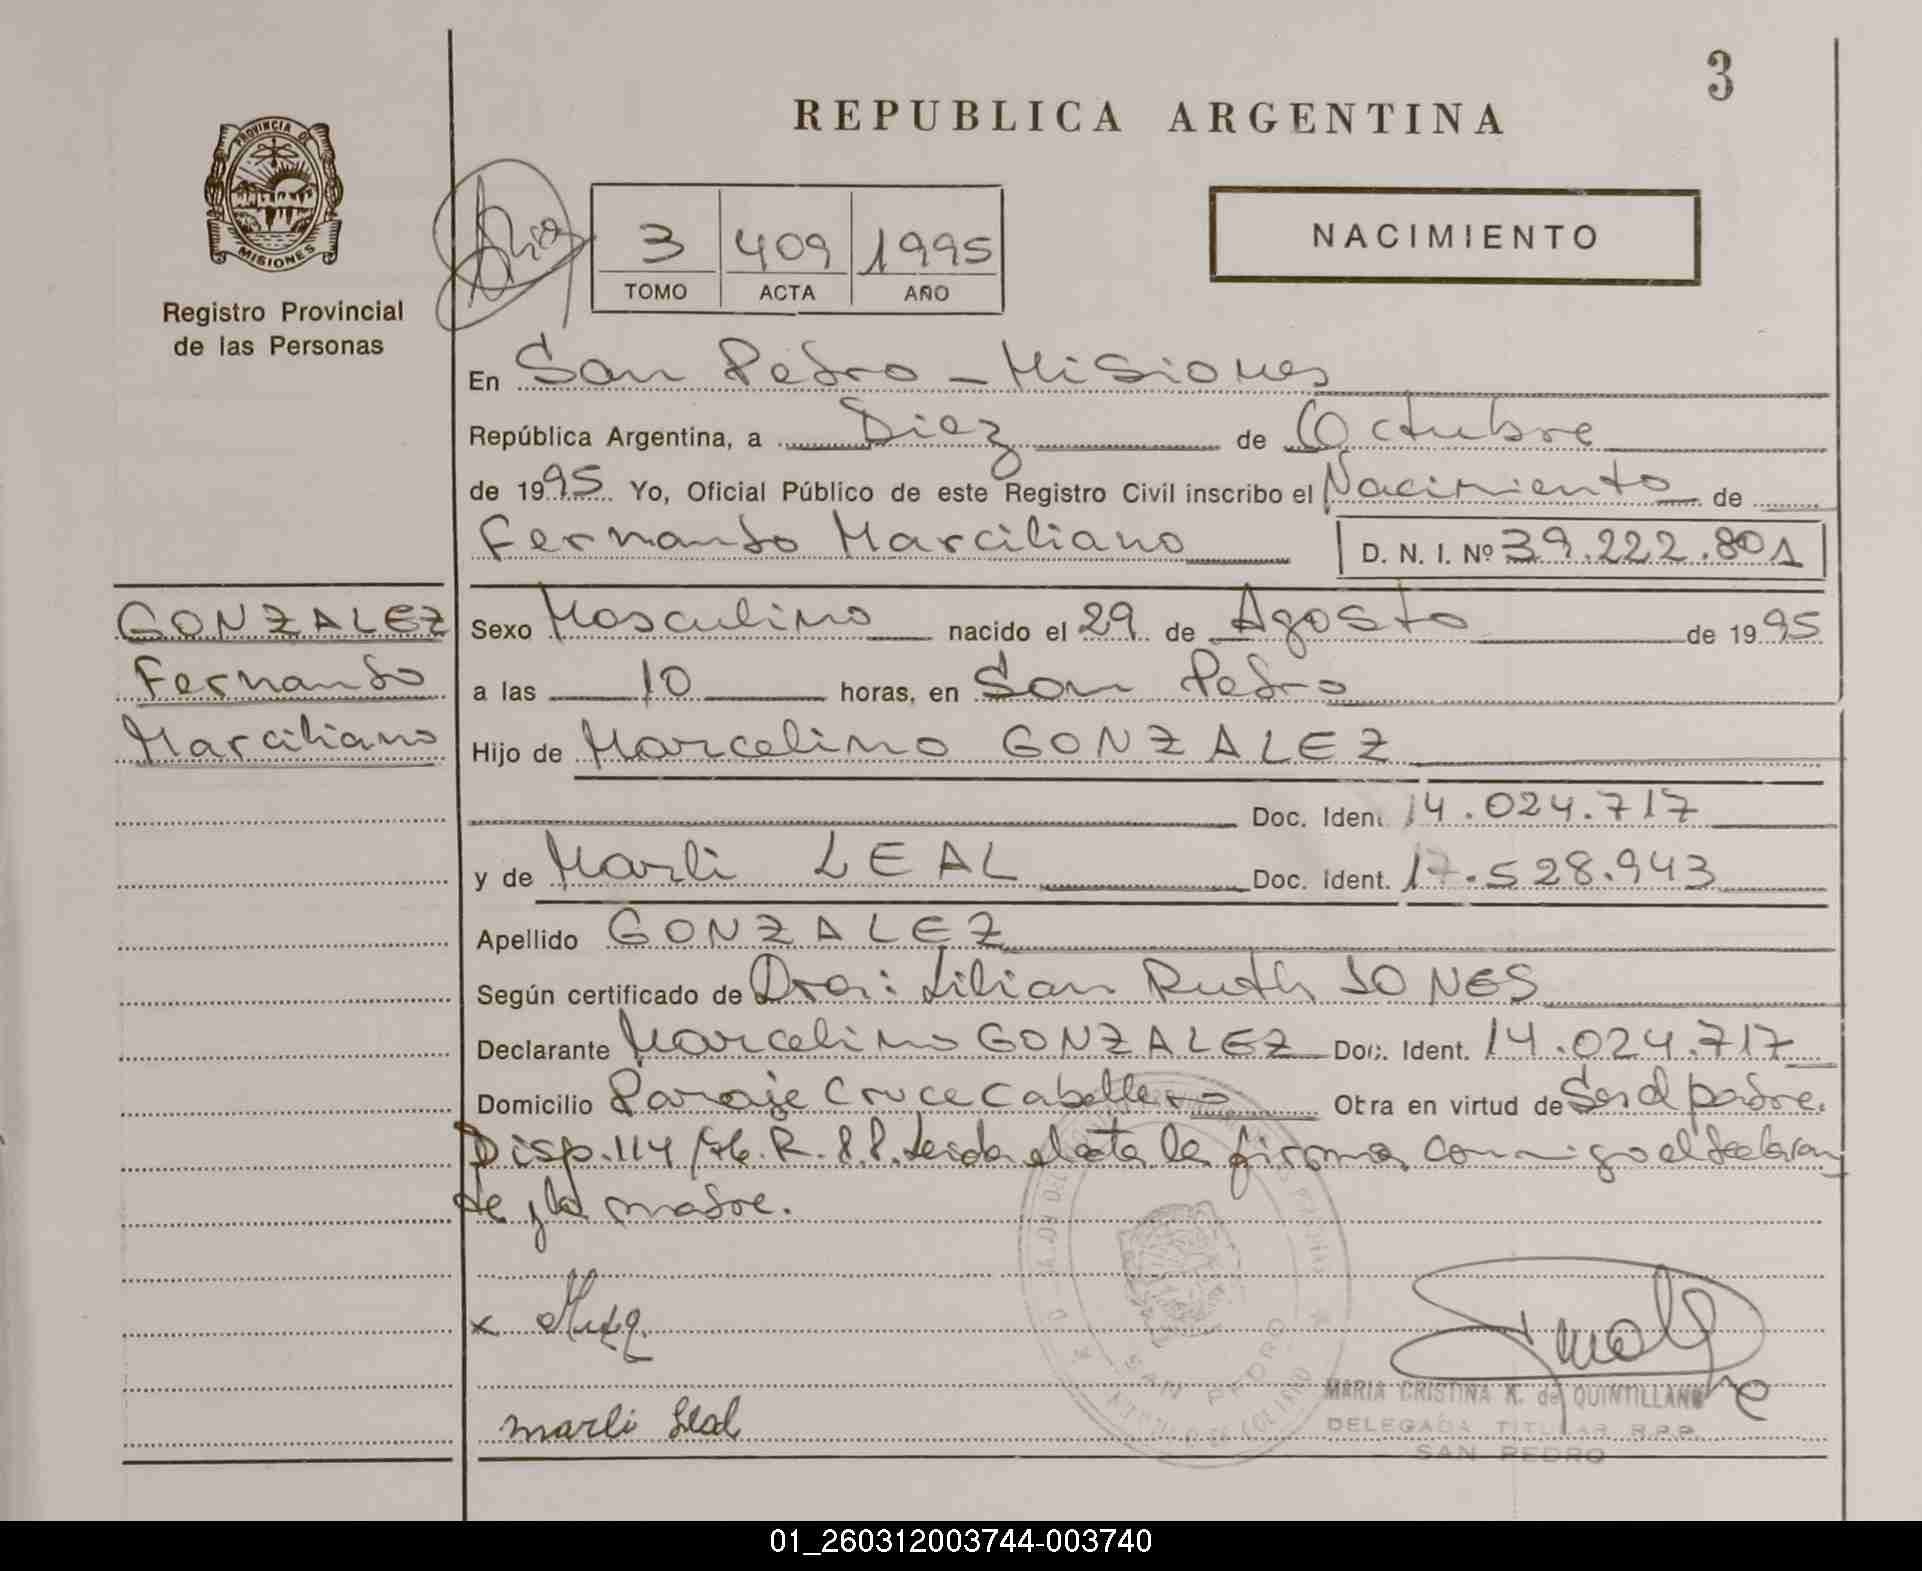 3
REPUBLICA ARGENTINA
PROVINCIA DE
MISIONES
Registro Provincial
de las Personas
3 409 1995
TOMO ACTA AÑO
NACIMIENTO
En San Pedro - Misiones
República Argentina, a Diez de Octubre
de 1995 Yo, Oficial Público de este Registro Civil inscribo el Nacimiento de
Fernando Marciliano D. N. I. Nº 39.222.801
GONZALEZ
Fernando
Marciliano
Sexo Masculino nacido el 29 de Agosto de 1995
a las 10 horas, en San Pedro
Hijo de Marcelino GONZALEZ
Doc. Ident. 14.024.717
y de Marli LEAL Doc. Ident. 17.528.943
Apellido GONZALEZ
Según certificado de Dra: Lilian Ruth JONES
Declarante Marcelino GONZALEZ Doc. Ident. 14.024.717
Domicilio Paraje Cruce Caballero Obra en virtud de Ser el padre.
Disp. 114/76. R. P. P. Leida el acta la firma conmigo el declaran
te y la madre.
x
SAN PEDRO
marli Leal
MARIA CRISTINA K. de QUINTILLAN
DELEGADA TITULAR R.P.P.
SAN PEDRO
01_260312003744-003740